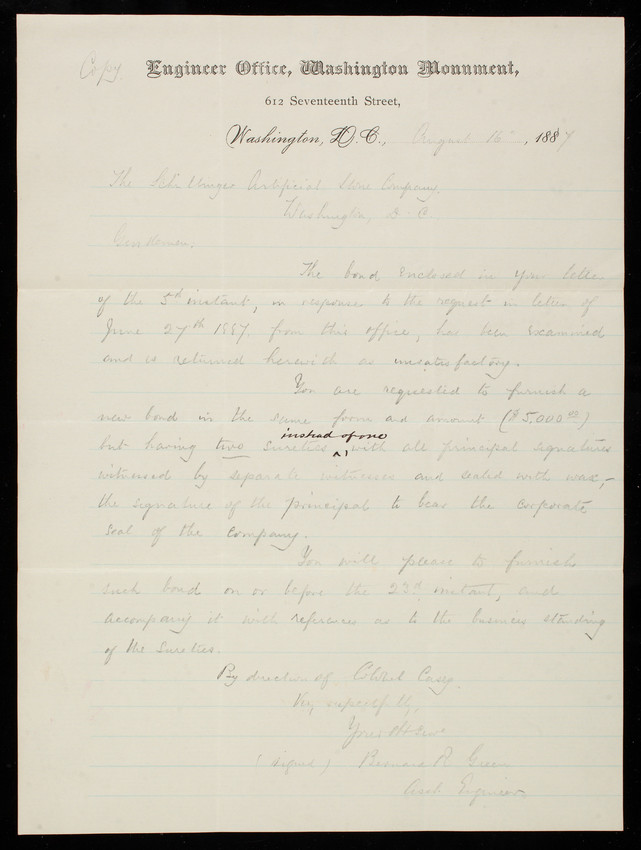 Copy
Engineer Office, Washington Monument,
612 Seventeenth Street,
Washington, D.C., August 16", 1887
The Schillinger Artificial Stone Company.
Washington, D.C.
Gentlemen;
The bond enclosed in your letter
of the 5th instant, in response to the request in letter of
June 27th 1887. from this office, has been examined
and is returned herewith as unsatisfactory.
You are requested to furnish a
new bond in the same form and amount ($5,000 00)
instead of one
but having two sureties ^ with all principal signatures
witnessed by separate witnesses and sealed with wax,-
the signature of the principal to bear the corporate
seal of the company.
You will please to furnish
such bond on or before the 23d instant, and
accompany it with references as to the business standing
of the sureties.
By direction of Colonel Casey.
Very respectfully,
Your Obt Serv
(signed) Bernard R. Green
Asst Engineer